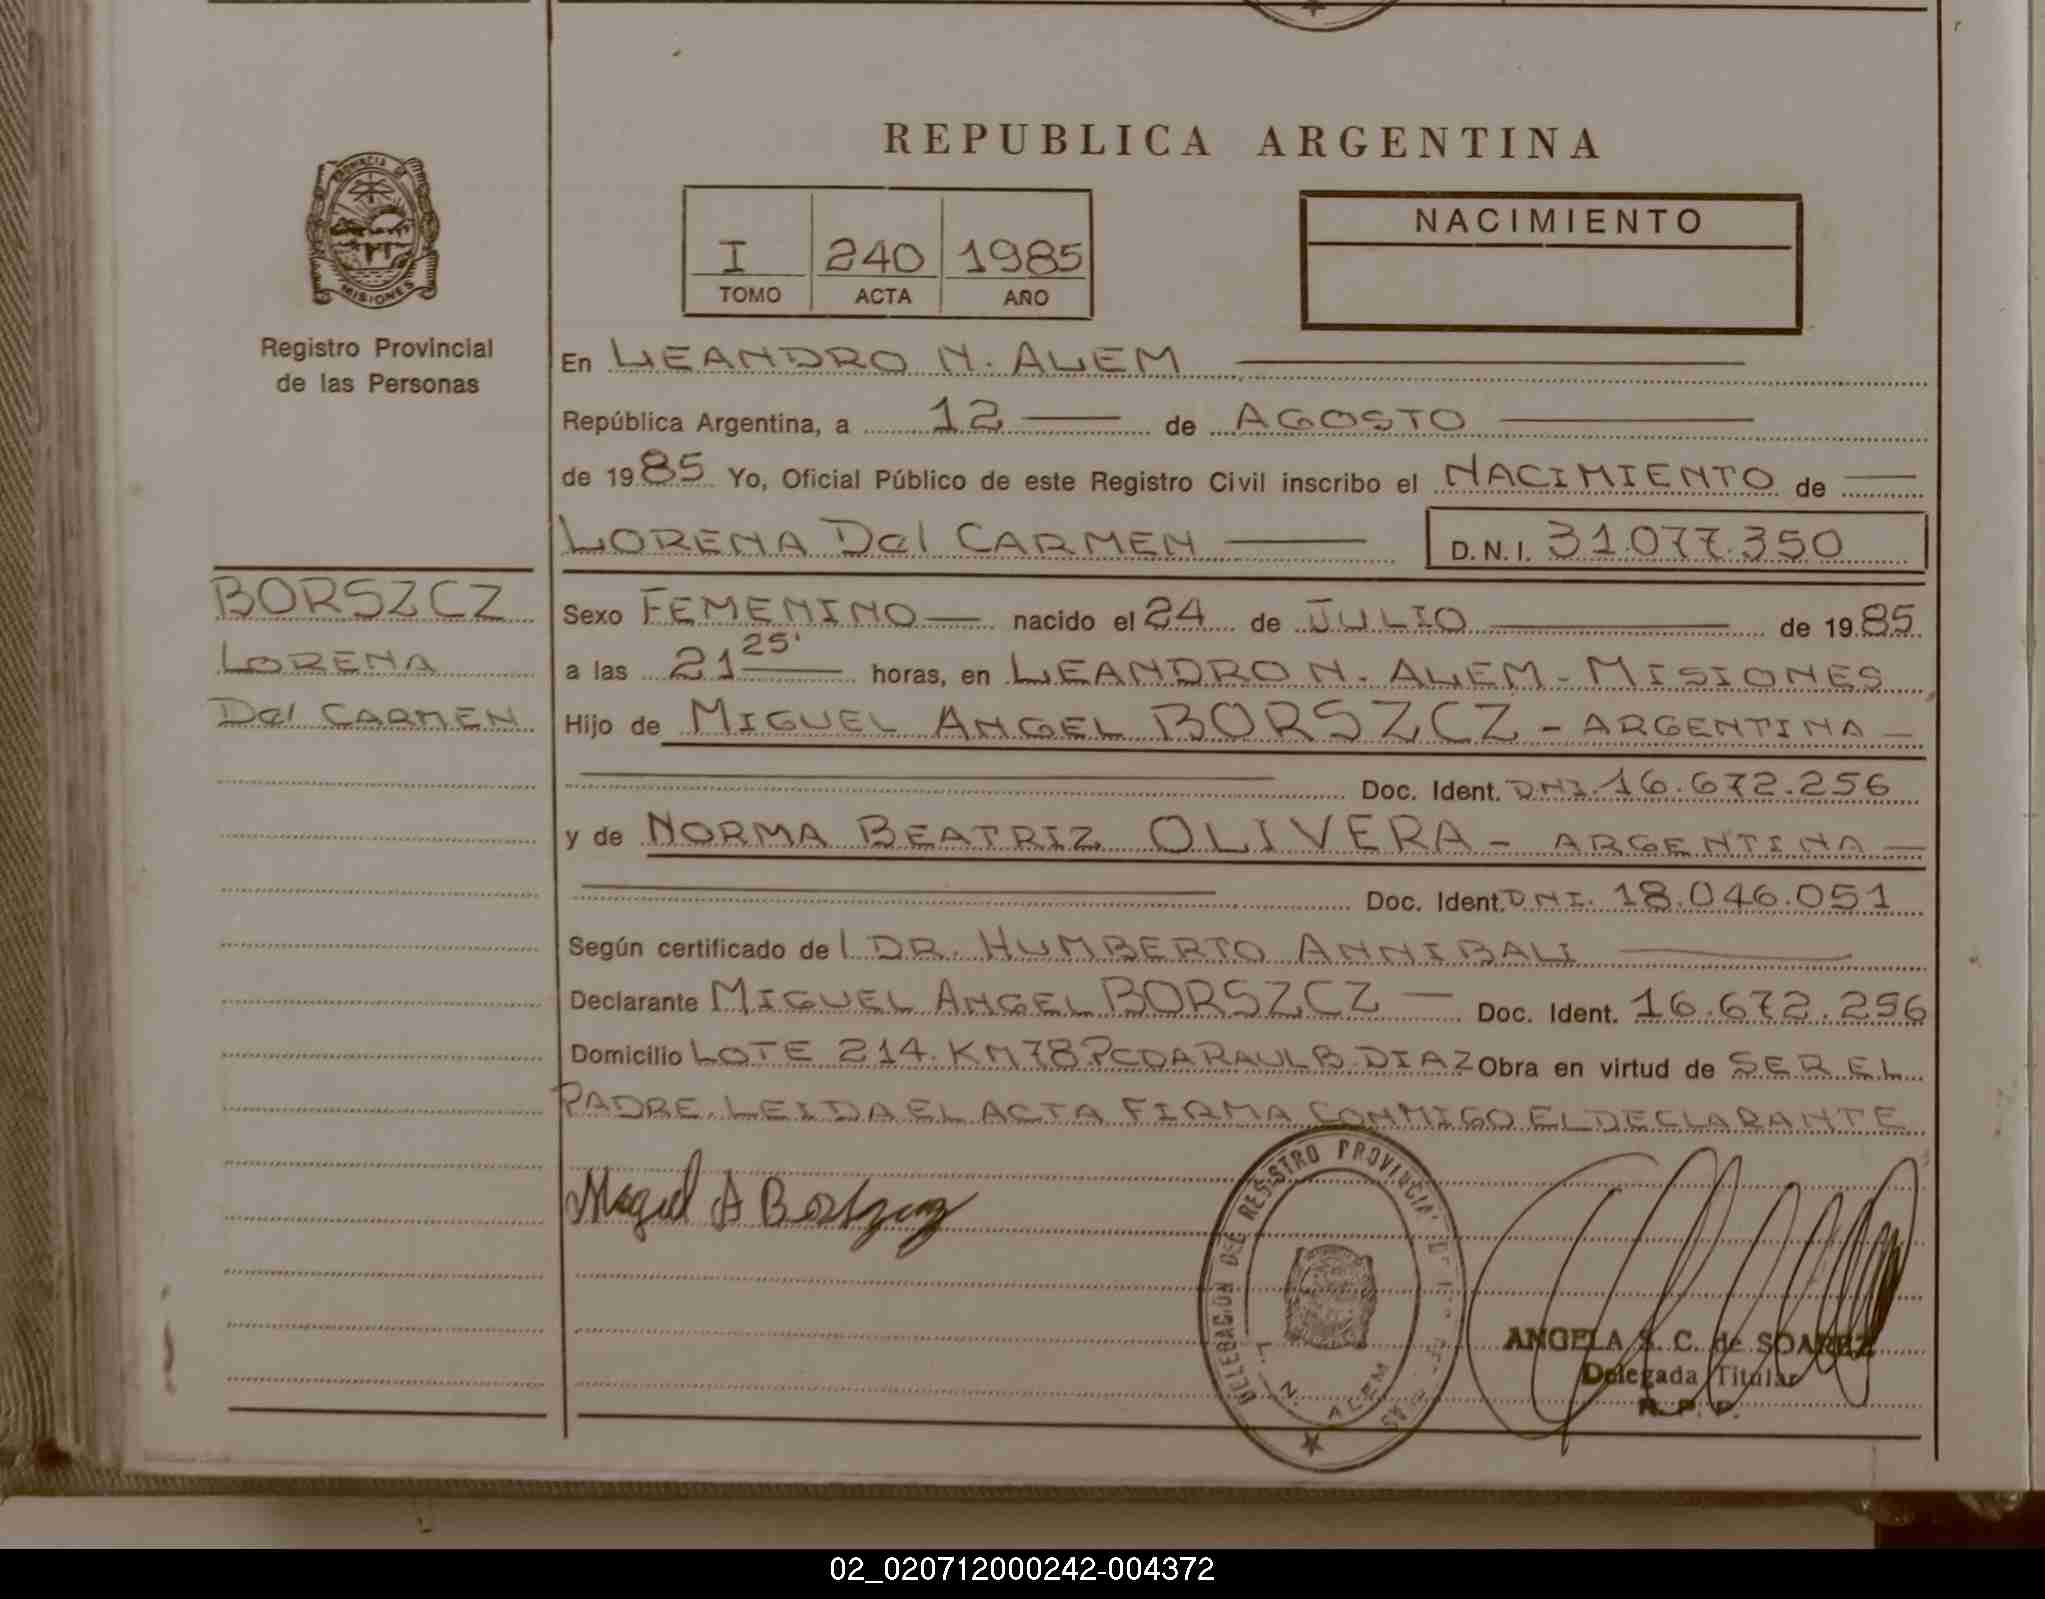 REPUBLICA ARGENTINA
PROVINCIA DE
MISIONES
Registro Provincial
de las Personas
I 240 1985
TOMO ACTA AÑO
NACIMIENTO
En LEANDRO N. ALEM
República Argentina, a 12 de AGOSTO
de 1985 Yo, Oficial Público de este Registro Civil inscribo el NACIMIENTO de
LORENA Del CARMEN D.N.I. 31.077.350
BORSZCZ
LORENA
Del CARMEN
Sexo FEMENINO nacido el 24 de JULIO de 1985
a las 21 25' horas, en LEANDRO N. ALEM - MISIONES
Hijo de MIGUEL ANGEL BORSZCZ - ARGENTINA
Doc. Ident. DNI. 16.672.256
y de NORMA BEATRIZ OLIVERA - ARGENTINA
Doc. Ident. DNI. 18.046.051
Según certificado de l DR. HUMBERTO ANNIBALI
Declarante MIGUEL ANGEL BORSZCZ Doc. Ident. 16.672.256
Domicilio LOTE 214. KM 78 PCDA RAUL B. DIAZ Obra en virtud de SER EL
PADRE. LEIDA EL ACTA FIRMA CONMIGO EL DECLARANTE
Miguel A Borszcz
DELEGACION DEL REGISTRO PROVINCIAL DE LAS
L. N. ALEM
ANGELA S. C. de SOAREZ
Delegada Titular
R. P. P.
02_020712000242-004372